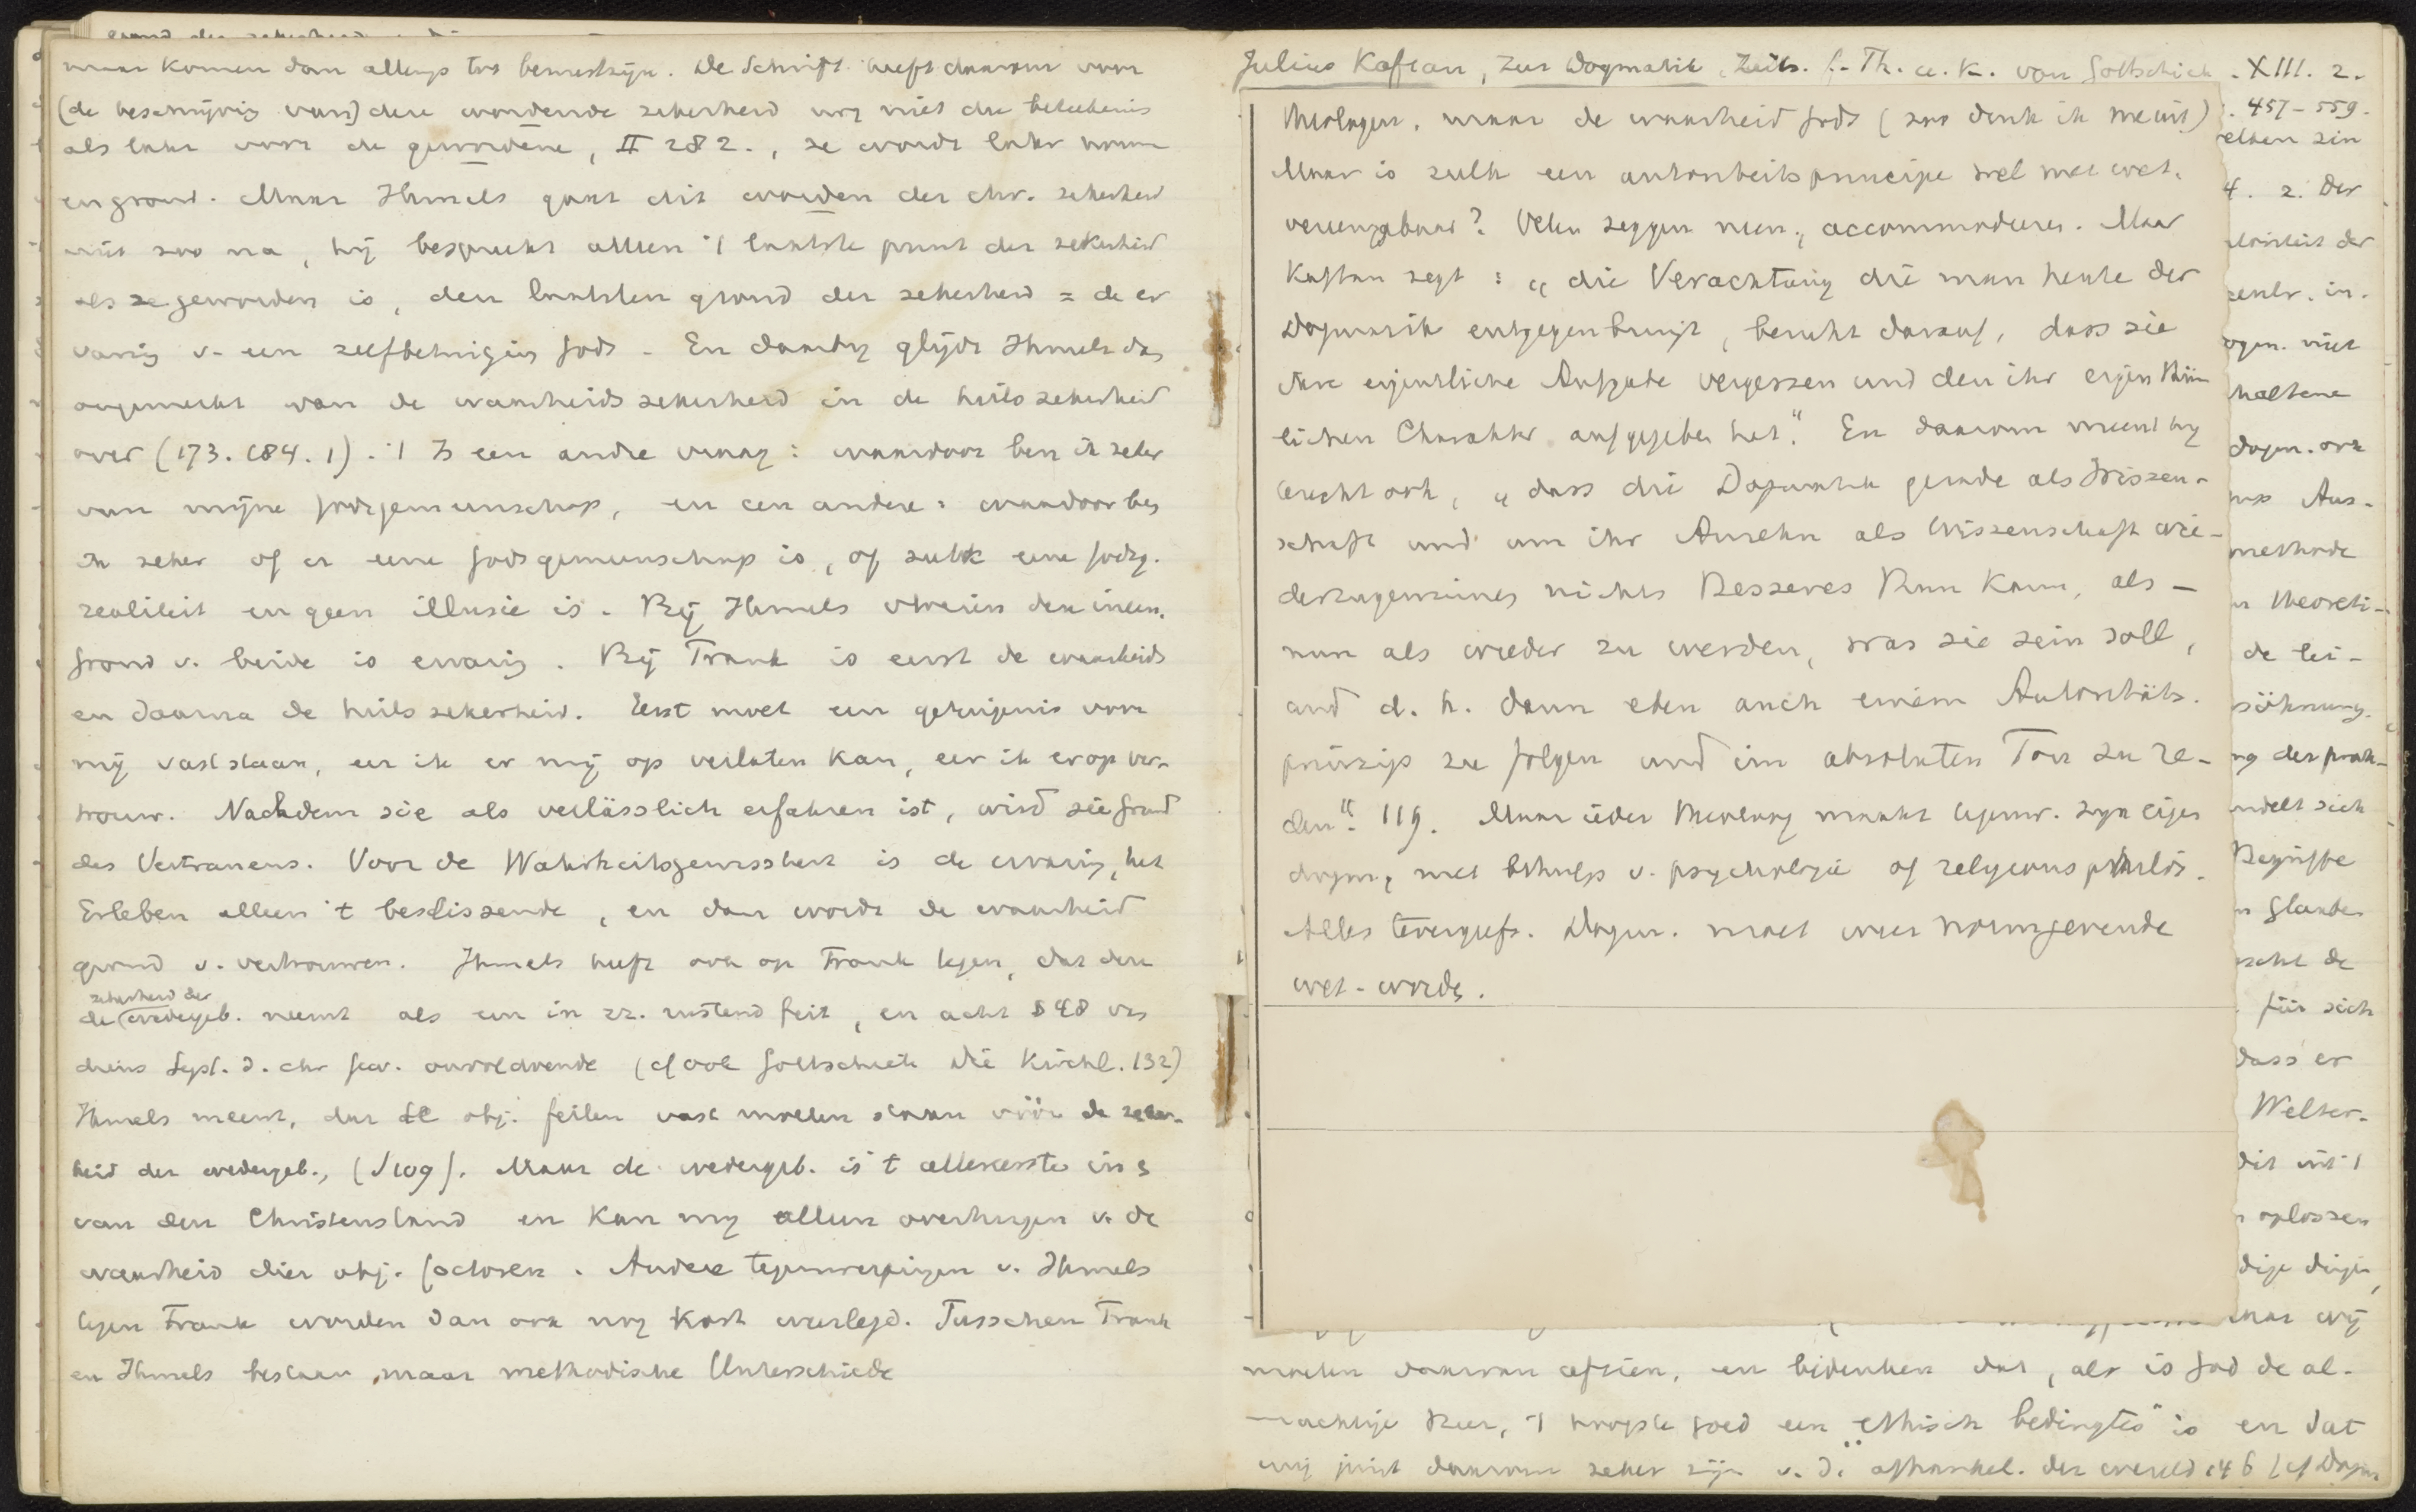 maar komen dan allengs tot bewustzijn. De Schrift heeft daarom voor
(de beschrijving van) deze wordende zekerheid nog niet die beteekenis
als later voor de gewordene, II 282., ze wordt later norm
en grond. Maar Ihmels gaat dit worden der chr. zekerheid
niet zoo na, hij bespreekt alleen 't laatste punt der zekerheid
als ze geworden is, den laatsten grond der zekerheid = de er
varing v. een zelfbetuiging Gods. En daarbij glijdt Ihmels dan
ongemerkt van de waarheidszekerheid in de heilszekerheid
over (173. 184. 1). 't Is een andre vraag: waardoor ben ik zeker
van mijne Godsgemeenschap, en een andere: waardoor ben
ik zeker of er eene Godsgemeenschap is, of zulk eene Godsg.
realiteit en geen illusie is. Bij Ihmels vloeien deze ineen.
Grond v. beide is ervaring. Bij Frank is eerst de waarheids
en daarna de heilszekerheid. Eerst moet een getuigenis voor
mij vaststaan, eer ik er mij op verlaten kan, eer ik erop ver-
trouw. Nachdem sie als verlässlich erfahren ist, wird sie Grund
des Vertrauens. Voor de Wahrheitsgewissheit is de ervaring, het
Erleben alleen 't beslissende, en dan wordt de waarheid
grond v. vertrouwen. Ihmels heeft ook op Frank tegen, dat deze
zekerheid der
de wedergeb. neemt als een in zz. rustend feit, en acht § 48 van
diens Syst. d. chr. Gew. onvoldoende (cf ook Gottschick Die Kirchl. 132)
Ihmels meent, dat de obj. feiten vast moeten staan vóór de zeker-
heid der wedergeb., (S 109). Maar de wedergeb. is 't allereerste in 
van den Christenstand en kan mij alleen overtuigen v. de
waarheid dier obj. factoren. Andere tegenwerpingen v. Ihmels
tegen Frank worden dan ook nog kort weerlegd. Tusschen Frank
en Ihmels bestaan maar methodische Unterschiede
Julius Kaftan, Zur Dogmatik. Zeits. f. Th. u. K. von Gottschick. XIII. 2.
. 457-559.
theologen, maar de waarheid Gods (zoo denk ik meent)
Maar is zulk een autoriteitsprincipe wel met wet.
vereenigbaar? Velen zeggen neen, accommodeeren. Maar
Kaftan zegt: "die Verachtung die man heute der
Dogmatik entgegenbringt, beruht darauf, dass sie
ihre eigentliche Aufgabe vergessen und den ihr eigenthüm
lichen Charakter aufgegeben hat." En daarom meent hij
terecht ook, "dass die Dogmatik gerade als Wissen-
schaft und um ihr Ansehn als Wissenschaft wie-
derzugewinnen nichts Besseres thun kann, als –
nun als wieder zu werden, was sie sein soll,
und d. h. dann eben auch einem Autoritäts-
prinzip zu folgen und im absoluten Ton zu re-
den". 119. Maar ieder theoloog maakt tegenw. zijn eigen
dogm., met behulp v. psychologie of religionsphilos.
Alles tevergeefs. Dogm. moet weer normgevende
wet. worden.
elken zin
4. 2. Der
der
centr. in.
ogm. niet
haltene
dogm. ook
Aus-
methode
theoreti-
de lei-
söhnung.
ng der prak-
ndelt sich
Begriffe
n Glaube
de
für sich
dass er
Welter-
dit uit 't
oplossen
dige dingen,
maar wij
moeten daarvan afzien, en bedenken dat, als is God de al-
machtige Heer, 't hoogste goed een "ethisch bedingtes" is en dat
wij juist daarvan zeker zijn v. d. afhankel. der wereld 146 (cf Dogm.